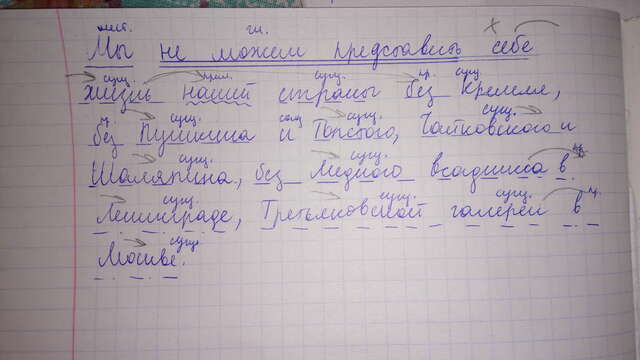 мест. гл.
Мы не можем представить себе
сущ. прил. сущ. пр. сущ.
жизнь нашей страны без Кремля,
пр. сущ. союз сущ. сущ.
без Пушкина и Толстого, Чайковского и
сущ. сущ. пр.
Шаляпина, без Медного всадника в
сущ. сущ. сущ. пр.
Ленинграде, Третьяковской галереи в
сущ.
Москве.